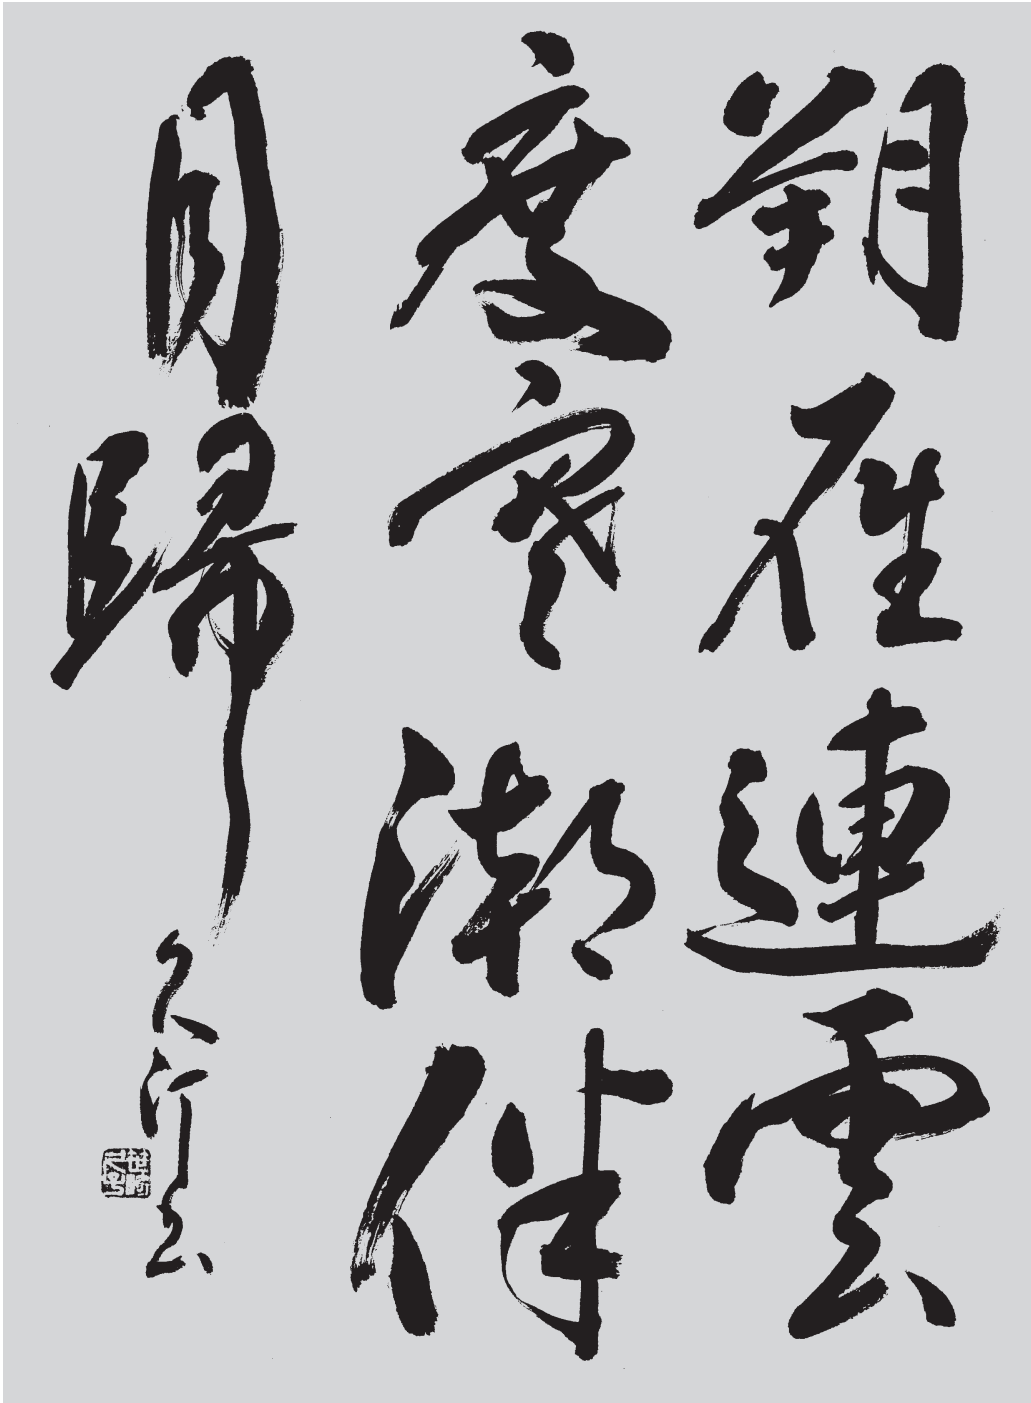 朔雁連雲
度寒潮伴
月歸
久汀書